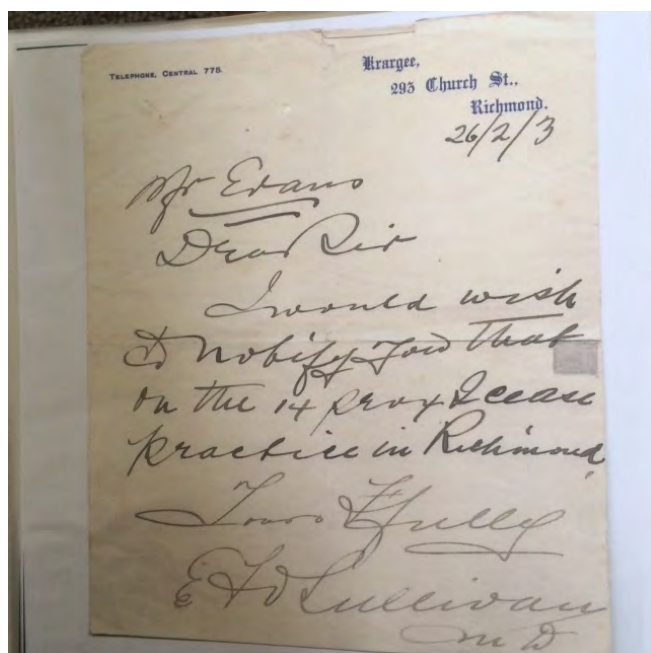 TELEPHONE, CENTRAL 775.
Krargee,
293 Church St.,
Richmond.
26/2/3
Mr Evans
Dear Sir
I would wish
to notify you that
on the 14 prox I cease
practice in Richmond
Yours Ffully
E F O'Sullivan
M D